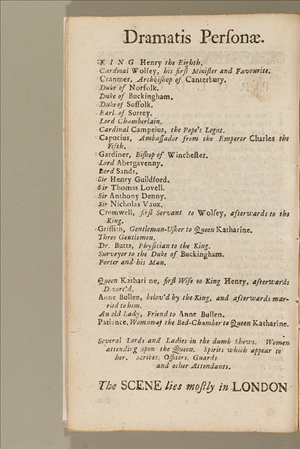 Dramatis Personæ.
KING Henry the Eighth.
Cardinal Wolsey, his first Minister and Favourite.
Cranmer, Archbishop of Canterbury.
Duke of Norfolk.
Duke of Buckingham.
Duke of Suffolk.
Earl of Surrey.
Lord Chamberlain.
Cardinal Campeius, the Pope's Legat.
Capucius, Ambassador from the Emperor Charles the
Fifth.
Gardiner, Bishop of Winchester.
Lord Abergavenny.
Lord Sands.
Sir Henry Guildford.
Sir Thomas Lovell.
Sir Anthony Denny.
Sir Nicholas Vaux.
Cromwell, first Servant to Wolsey, afterwards to the
King.
Griffith, Gentleman-Usher to Queen Katharine.
Three Gentlemen.
Dr. Butts, Physician to the King.
Surveyor to the Duke of Buckingham.
Porter and his Man.
Queen Katharine, first Wife to King Henry, afterwards
Divorc'd.
Anne Bullen, belov'd by the King, and afterwards mar-
ried to him.
An old Lady, Friend to Anne Bullen.
Patience, Woman of the Bed-Chamber to Queen Katharine.
Several Lords and Ladies in the dumb Shews. Women
attending upon the Queen. Spirits which appear to
her. Scribes, Officers, Guards
and other Attendants.
The SCENE lies mostly in LONDON